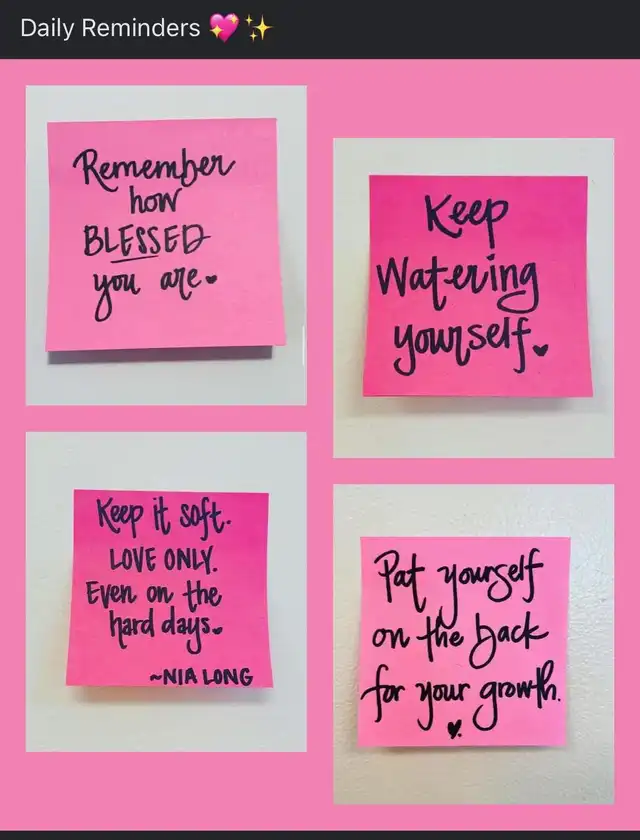 Daily Reminders 💖✨
Remember
how
BLESSED
you are.
Keep
Watering
yourself.
Keep it soft.
LOVE ONLY.
Even on the
hard days.
~NIA LONG
Pat yourself
on the back
for your growth.